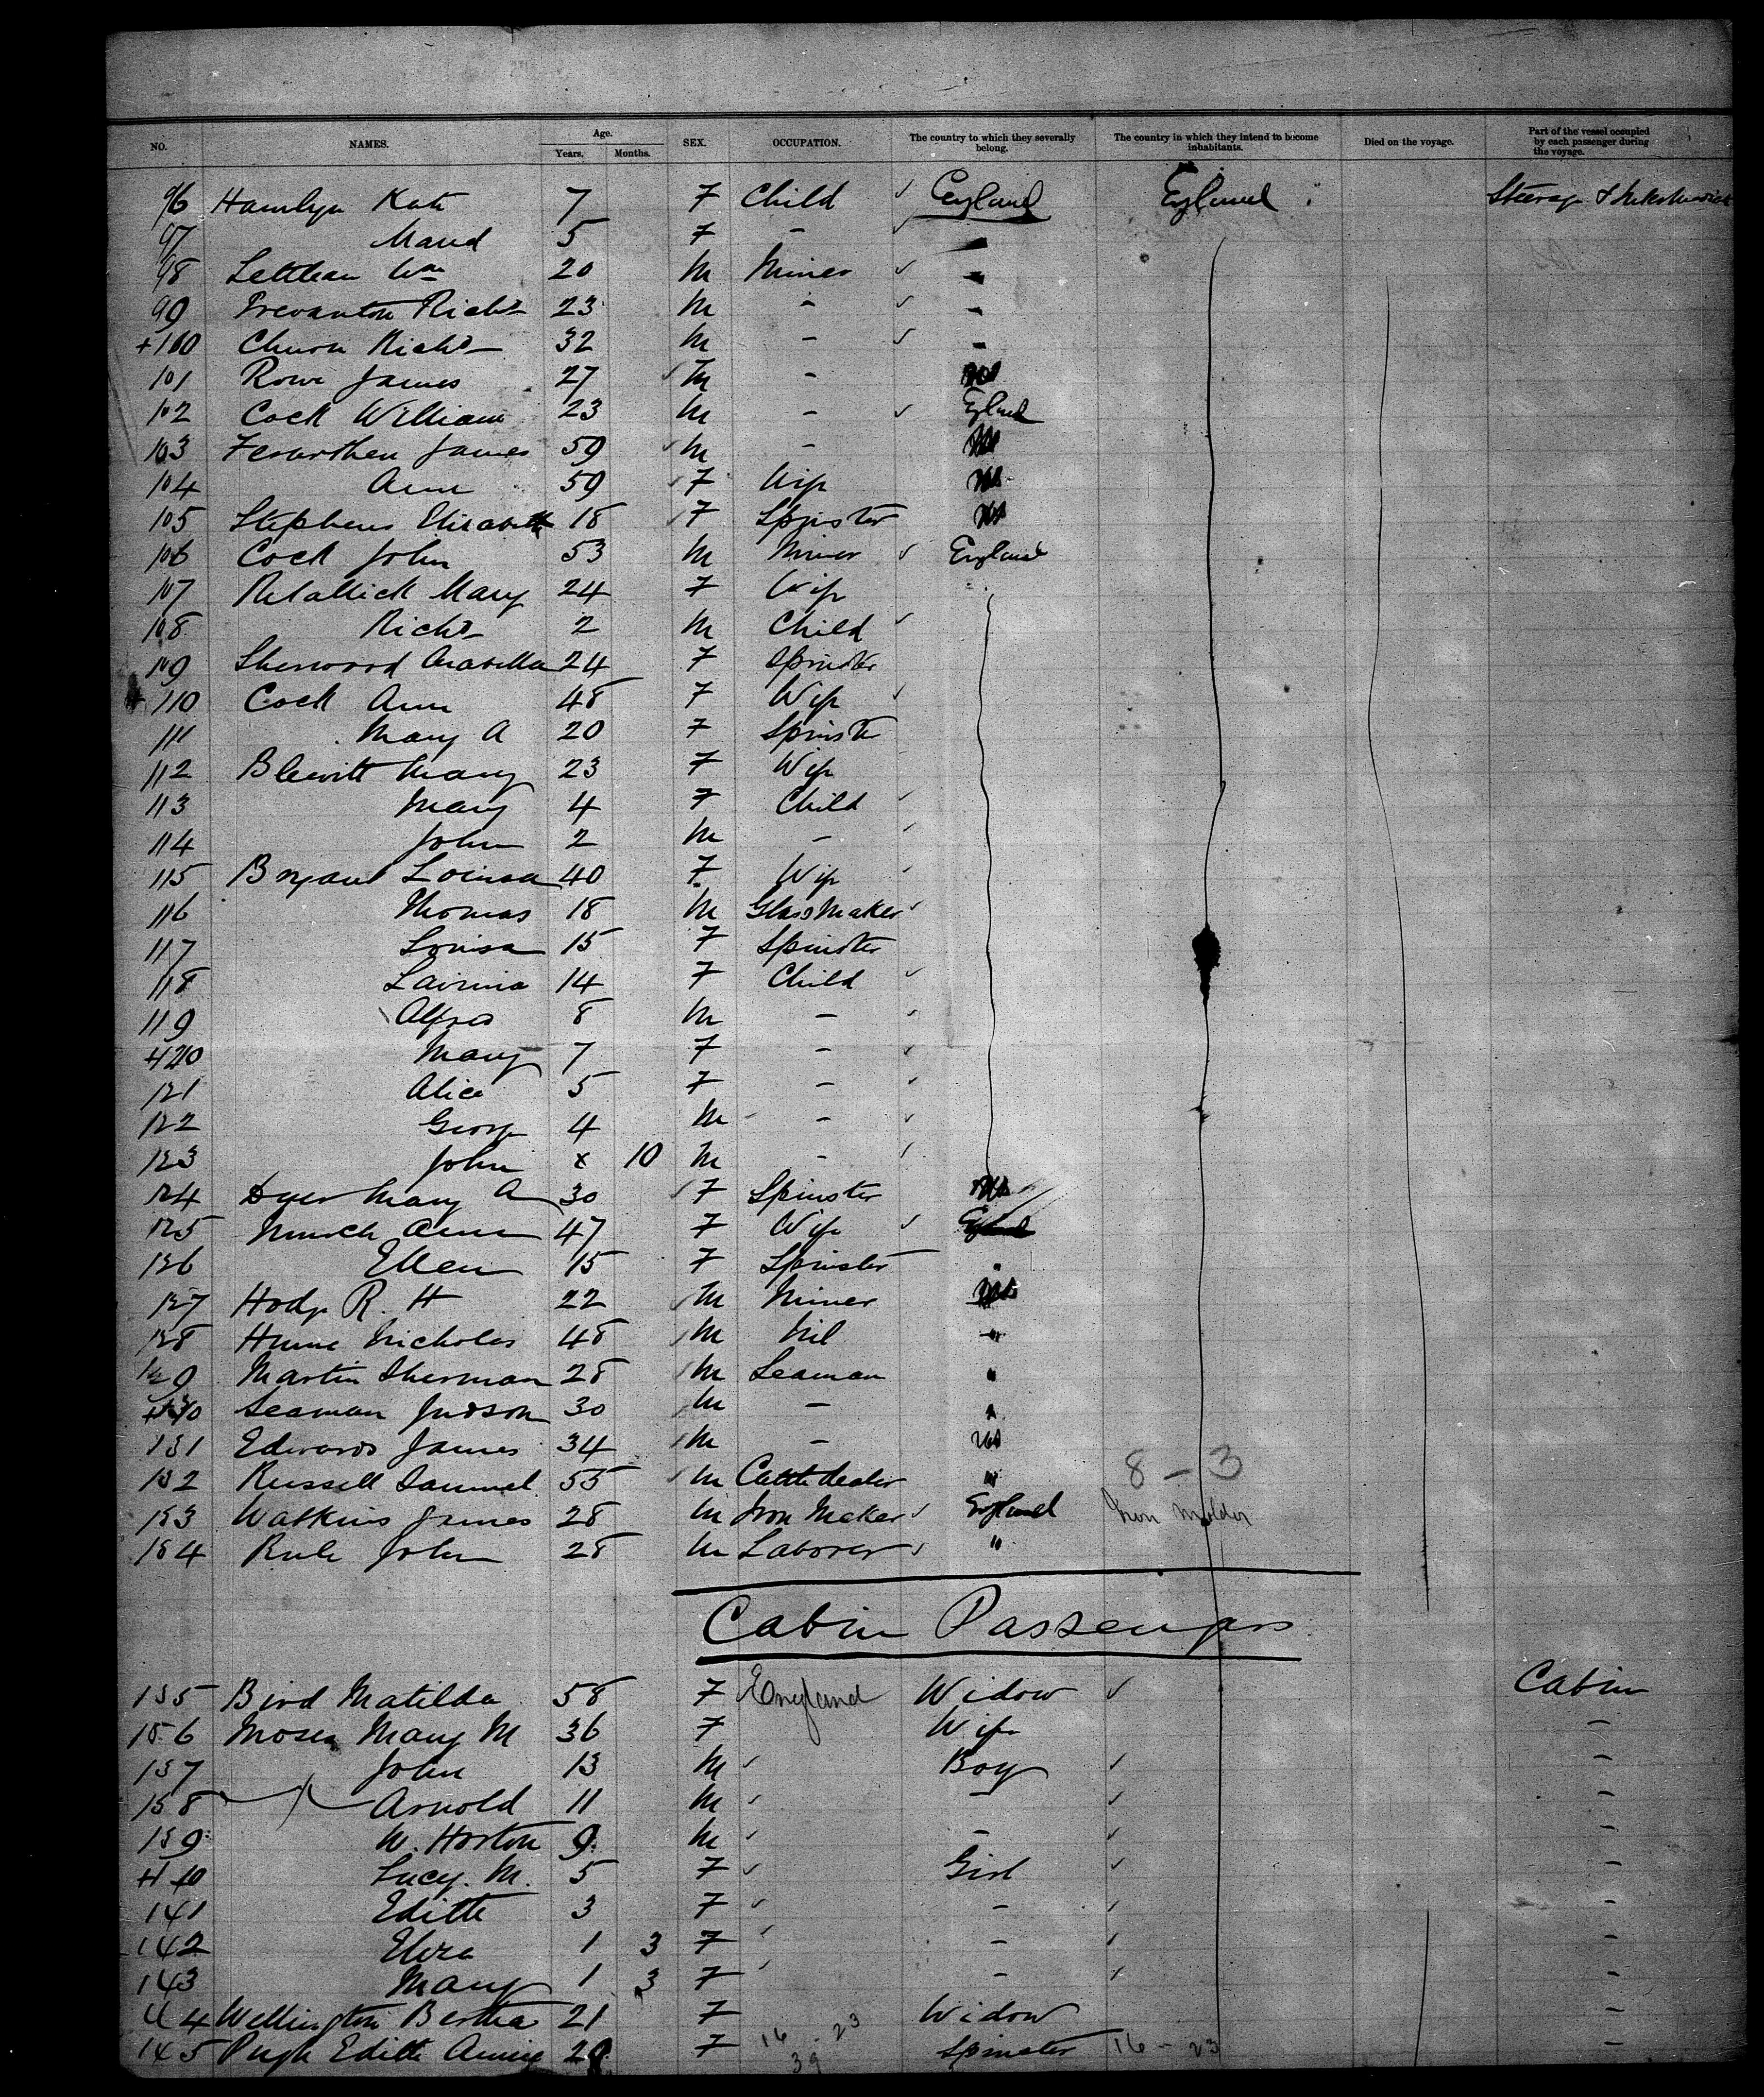 NO. NAMES. Age. SEX. OCCUPATION. The country to which they severally belong. The country in which they intend to become inhabitants. Died on the voyage. Part of the vessel occupied by each passenger during the voyage.
Years. Months.
96 Hamlyn Kate 7 F Child England England Steerage
97 Maud 5 F -
98 20 M Miner
99 Richd 23 M -
+100 Richd 32 M -
101 Rowe James 27 M -
102 Cock William 23 M - England
103 James 59 M -
104 Ann 59 F Wife
105 Stephens Elizabeth 18 F Spinster
106 Cock John 53 M Miner England
107 Retallick Mary 24 F Wife
108 Richd 2 M Child
109 Sherwood Arabella 24 F Spinster
110 Cock Ann 48 F Wife
111 Mary A 20 F Spinster
112 Blewitt Mary 23 F Wife
113 Mary 4 F Child
114 John 2 M -
115 Bryant Louisa 40 F Wife
116 Thomas 18 M Glass Maker
117 Louisa 15 F Spinster
118 14 F Child
119 Alfred 8 M -
120 Mary 7 F -
121 Alice 5 F -
122 George 4 M -
123 John x 10 M -
124 Dyer Mary A 30 F Spinster
125 Ann 47 F Wife England
126 Ellen 15 F Spinster "
127 Hodge R. H 22 M Miner
128 Nicholas 48 M Nil "
129 Martin Sherman 28 M Seaman "
130 Seaman Judson 30 M - "
131 Edwards James 34 M -
132 Russell Samuel 55 M Cattle dealer " 8 - 3
133 Watkins James 28 M Iron Maker England Iron Molder
134 Rule John 28 M Laborer "
Cabin Passengers
135 Bird Matilda 58 F England Widow Cabin
136 Moses Mary M 36 F Wife -
137 John 13 M Boy -
138 Arnold 11 M - -
139 W. Horton 9 M - -
140 Lucy. M. 5 F Girl -
141 Edith 3 F - -
142 1 3 F - -
143 Mary 1 3 F - -
144 Wellington Bertha 21 F Widow -
145 Pugh Edith Annie F 16 - 23 Spinster 16 - 23 -
39